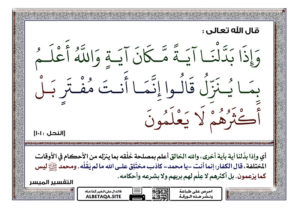 قال الله تعالى :
وَإِذَا بَدَّلْنَا آيَةً مَّكَانَ آيَةٍ وَاللَّهُ أَعْلَمُ
بِمَا يُنَزِّلُ قَالُوا إِنَّمَا أَنتَ مُفْتَرٍ بَلْ
أَكْثَرُهُمْ لَا يَعْلَمُونَ
[النحل : ١٠١]
أي وإذا بدلنا آية بآية أخرى، والله الخالق أعلم بمصلحة خلقه بما ينزله من الأحكام في الأوقات
المختلفة، قال الكفار: إنما أنت -يا محمد- كاذب مختلق على الله ما لم يقله. ومحمد ﷺ ليس
كما يزعمون. بل أكثرهم لا علم لهم بربهم ولا بشرعه وأحكامه.
التفسير الميسر
ALBETAQA.SITE
احرص على طباعة
ونشر هذه الورقة